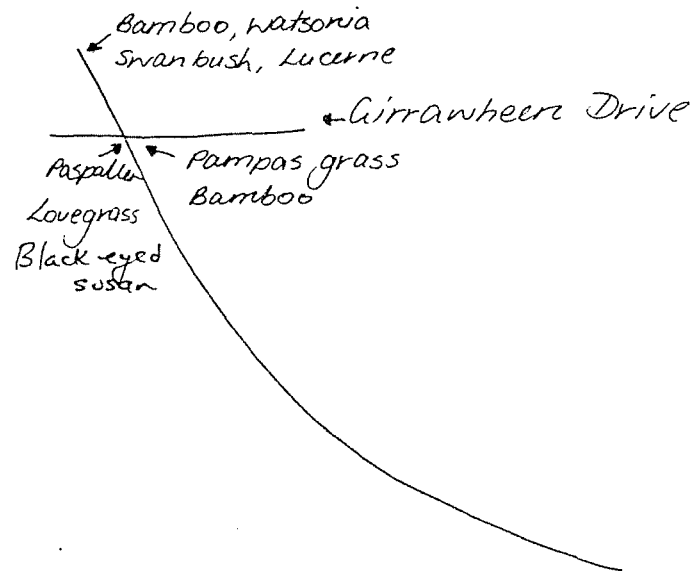 Bamboo, Watsonia
Swanbush, Lucerne
Girrawheen Drive
Pampas grass
Bamboo
Paspallum
Lovegrass
Black-eyed
susan